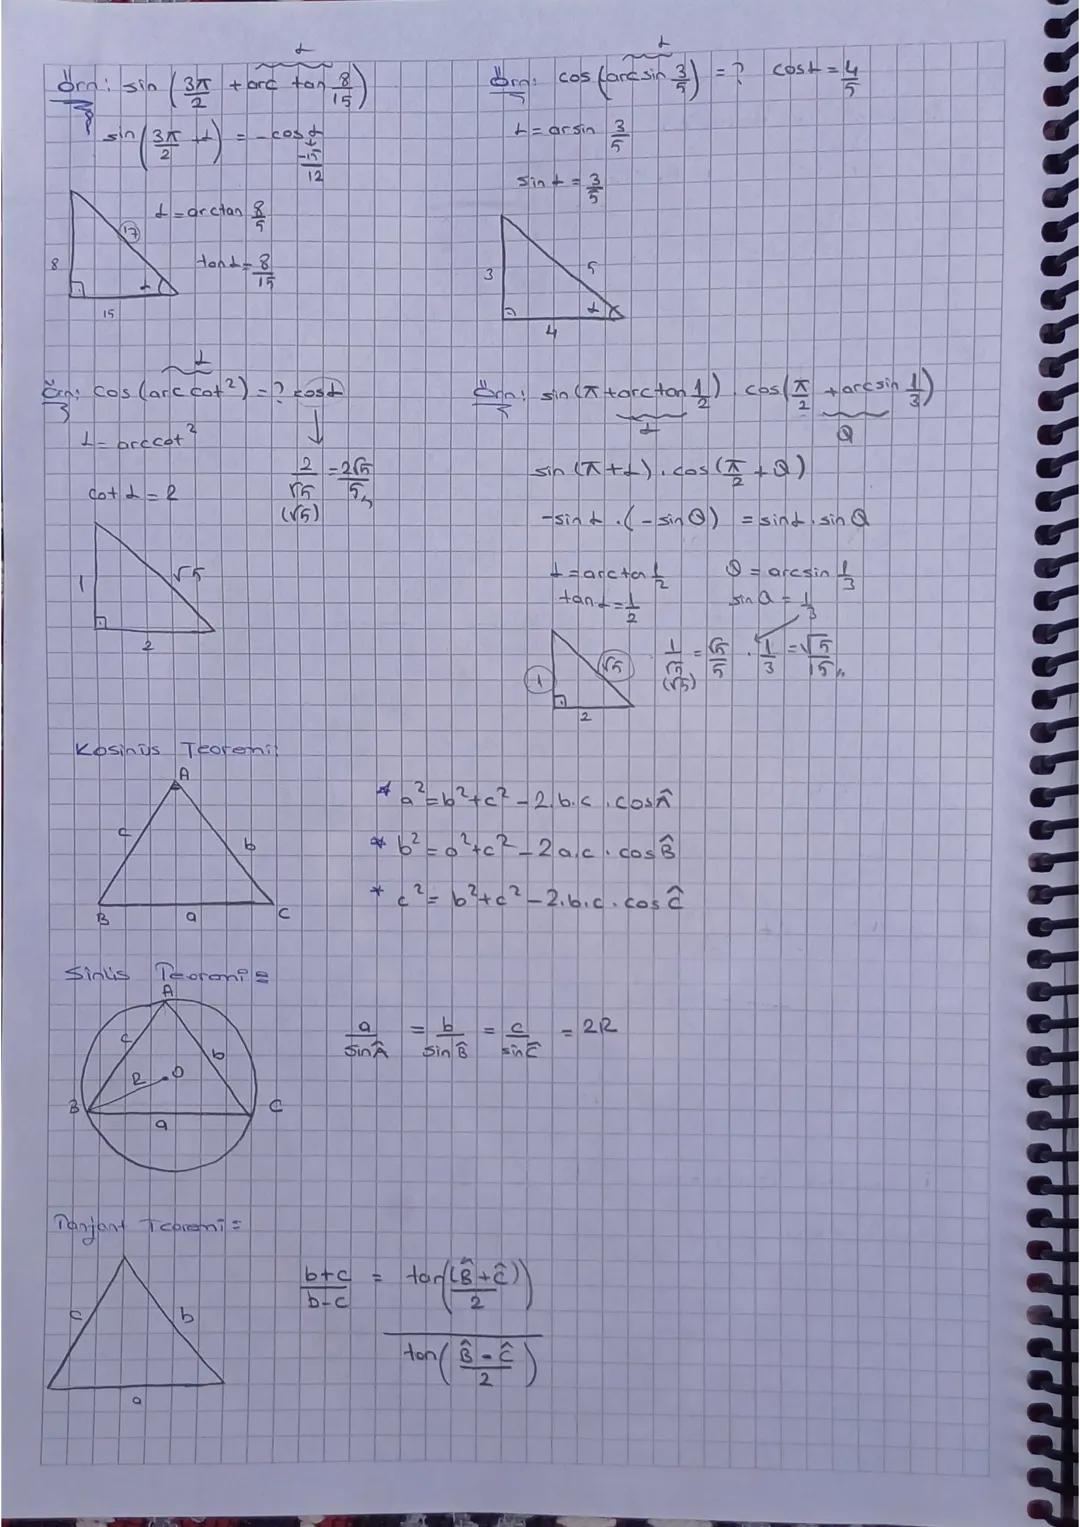 α
Örn: sin (3π/2 + arc tan 8/15)
sin(3π/2 + α) = -cos α
-15/12
α = arctan 8/5
tan α = 8/15
8
17
α
15
α
Örn: cos (arcsin 3/5) = ? cos α = 4/5
α = arsin 3/5
sin α = 3/5
3
5
α
4
α
Örn: cos (arc cot²) = ? cos α
α = arccot²
cot α = 2
2/√5 = 2√5/5
(√5)
1
√5
2
Örn: sin (π + arctan 1/2) . cos(π/2 + arcsin 1/3)
α
θ
sin (π + α) . cos (π/2 + θ)
-sin α . (-sin θ) = sin α . sin θ
α = arctan 1/2 θ = arcsin 1/3
tan α = 1/2 sin θ = 1/3
1/√5 = √5/5 . 1/3 = √5/15
(√5)
1
√5
2
Kosinüs Teoremi:
A
c
b
B
a
C
* a² = b² + c² - 2.b.c . cos Â
* b² = a² + c² - 2a.c . cos B̂
* c² = b² + c² - 2.b.c . cos Ĉ
Sinüs Teoremi =
A
c
b
R
O
B
C
a
a/sin Â = b/sin B̂ = c/sin Ĉ = 2R
Tanjant Teoremi =
c
b
a
b+c/b-c = tan((B̂ + Ĉ)/2)
tan(B̂ - Ĉ/2)